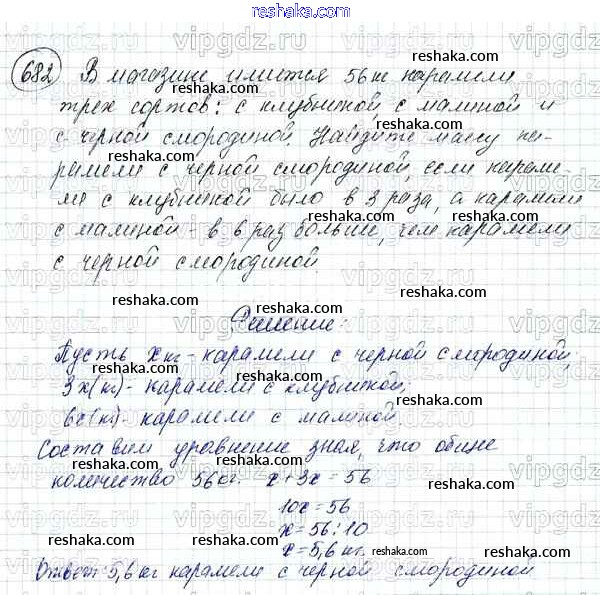 682 В магазине имется 56 кг карамели
трех сортов: с клубникой, с малиной и
с черной смородиной. Найдите массу ка-
рамели с черной смородиной, если караме-
ли с клубникой было в 3 раза, а карамели
с малиной - в 6 раз больше, чем карамели
с черной смородиной.
Решение:
Пусть x кг - карамели с черной смородиной;
3x(кг) - карамели с клубникой;
6x(кг) - карамели с малиной.
Составим уравнение зная, что общее
количество 56 кг. x+3x=56
10x=56
x=56:10
x=5,6 кг.
Ответ: 5,6 кг карамели с черной смородиной
reshaka.com
vipgdz.ru